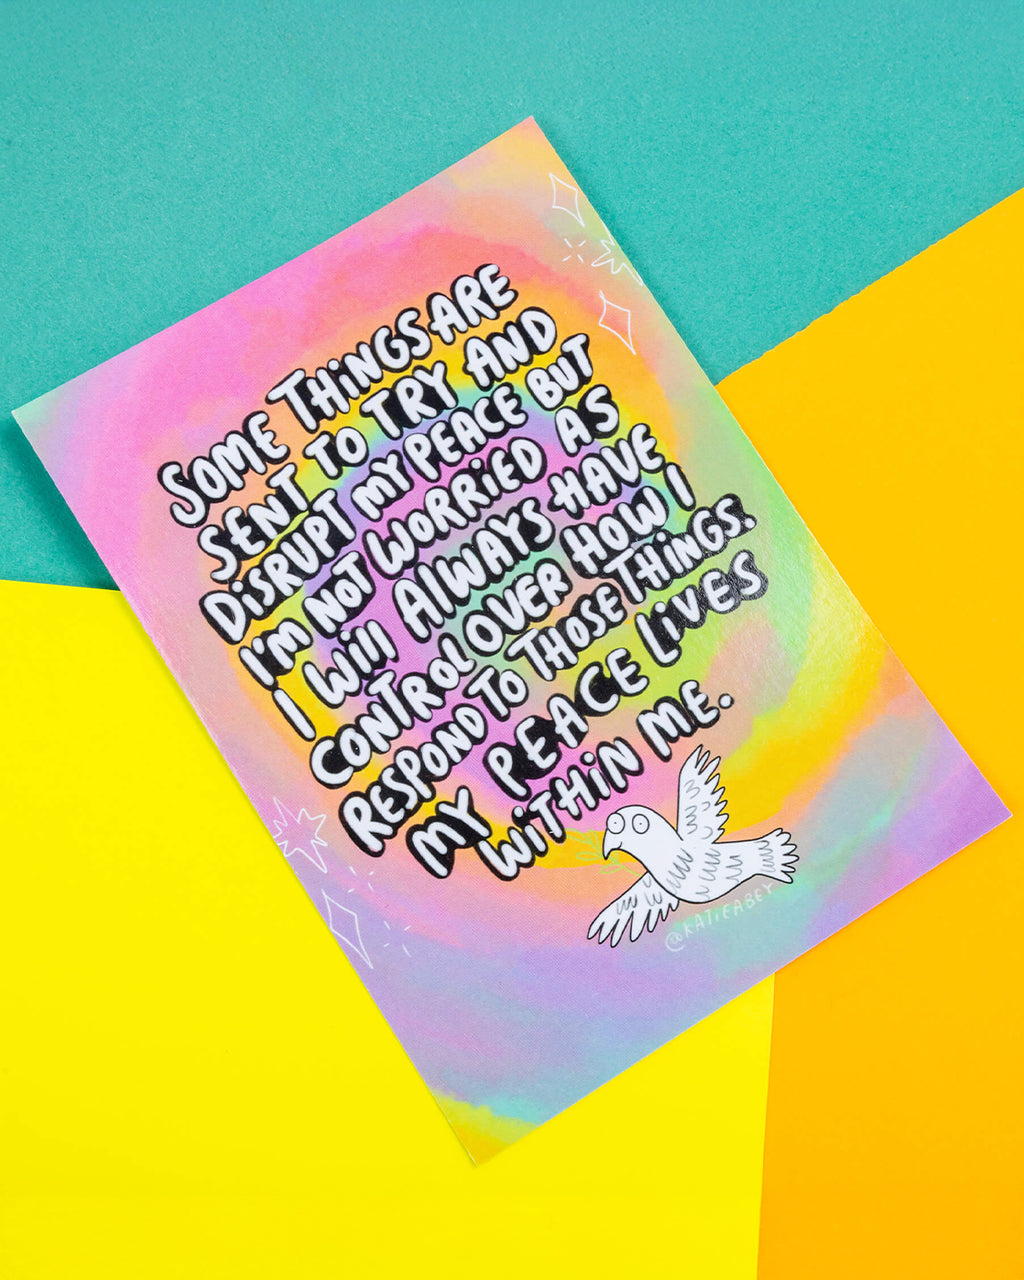 SOME THiNGS ARE
SENT TO TRY AND
DiSRUPT MY PEACE BUT
I'M NOT WORRiED AS
I Will AlWAYS HAVE
CONTROL OVER HOW I
RESPOND TO THOSE THiNGS.
MY PEACE LiVES
WiTHiN ME.
@KATIEABEY